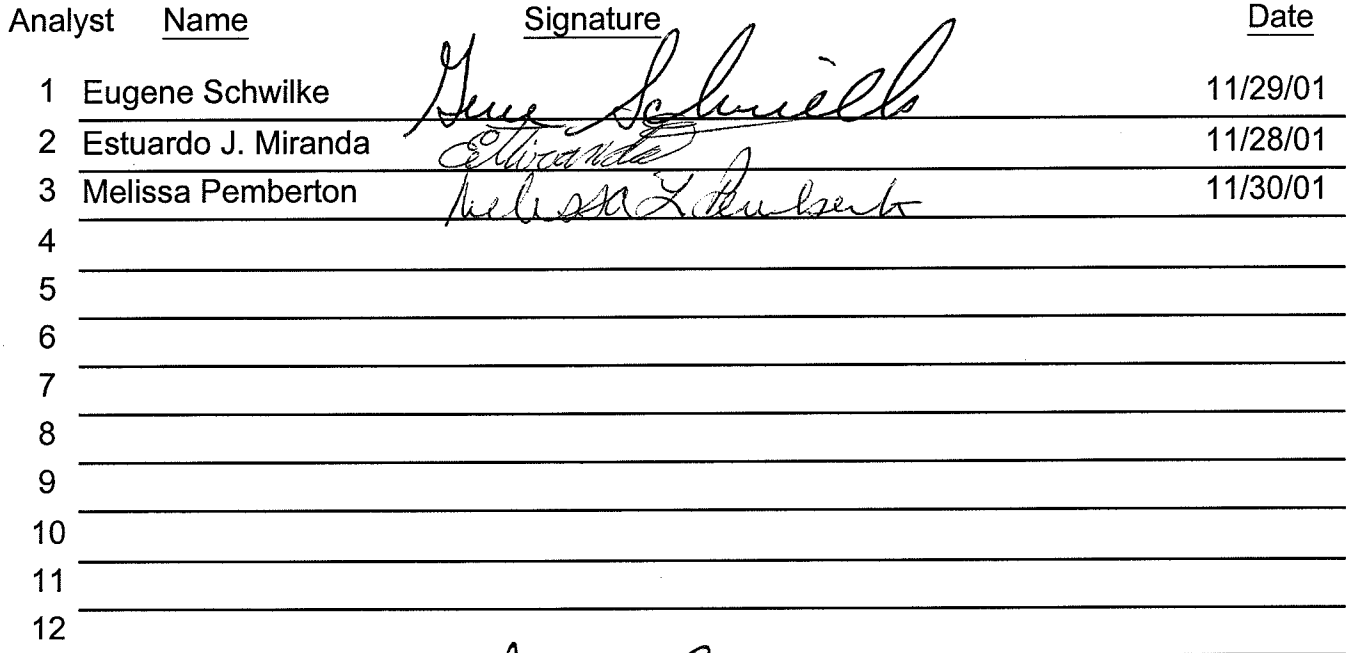 Analyst Name Signature Date
1 Eugene Schwilke Gene Schwilke 11/29/01
2 Estuardo J. Miranda EMiranda 11/28/01
3 Melissa Pemberton Melissa L Pemberton 11/30/01
4
5
6
7
8
9
10
11
12